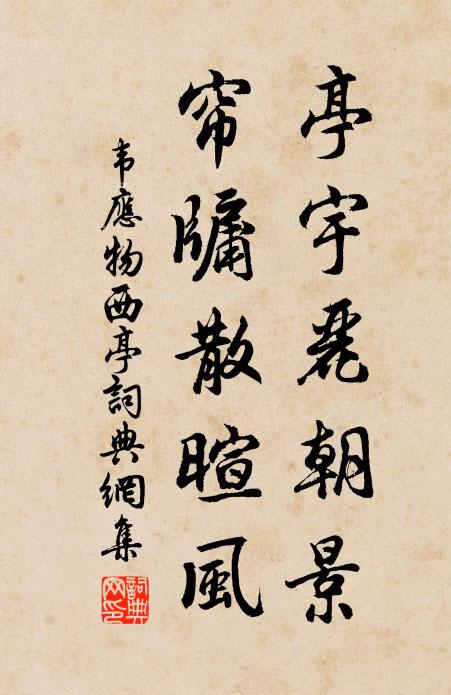 亭宇麗朝景
帘牖散暄風
韦應物西亭詞典網集
詞典网印